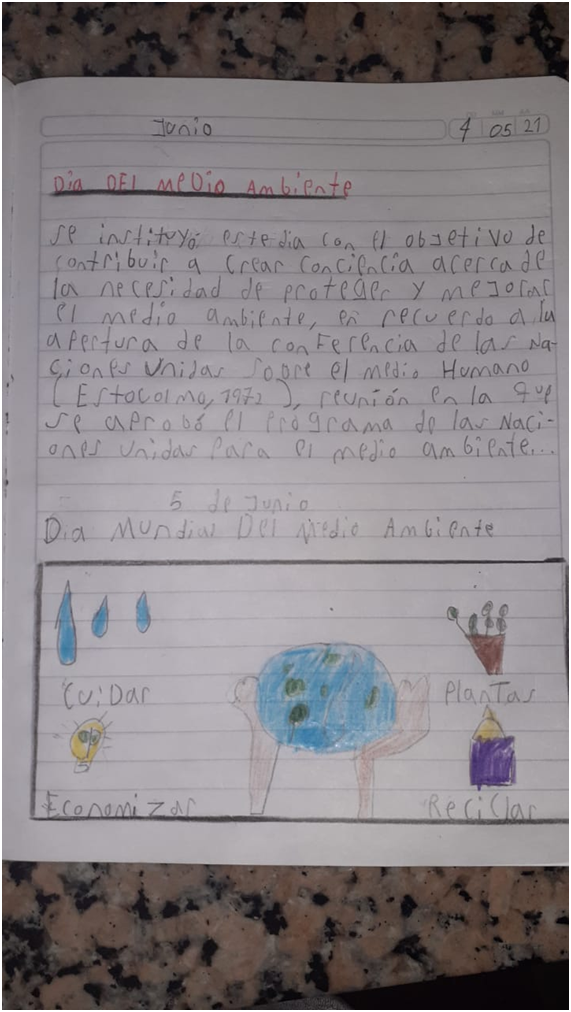 Junio 4 05 21
Dia DEl Medio Ambiente
se instituyó este dia con el objetivo de
contribuir a crear conciencia acerca de
la necesidad de proteger y mejorar
el medio ambiente, en recuerdo a la
apertura de la conferencia de las Na-
ciones Unidas sobre el medio Humano
(Estocolmo, 1972), reunión en la que
se aprobó el programa de las Naci-
ones Unidas para el medio ambiente...
5 de Junio
Dia Mundial Del Medio Ambiente
Cuidar
Plantas
Economizar
Reciclar